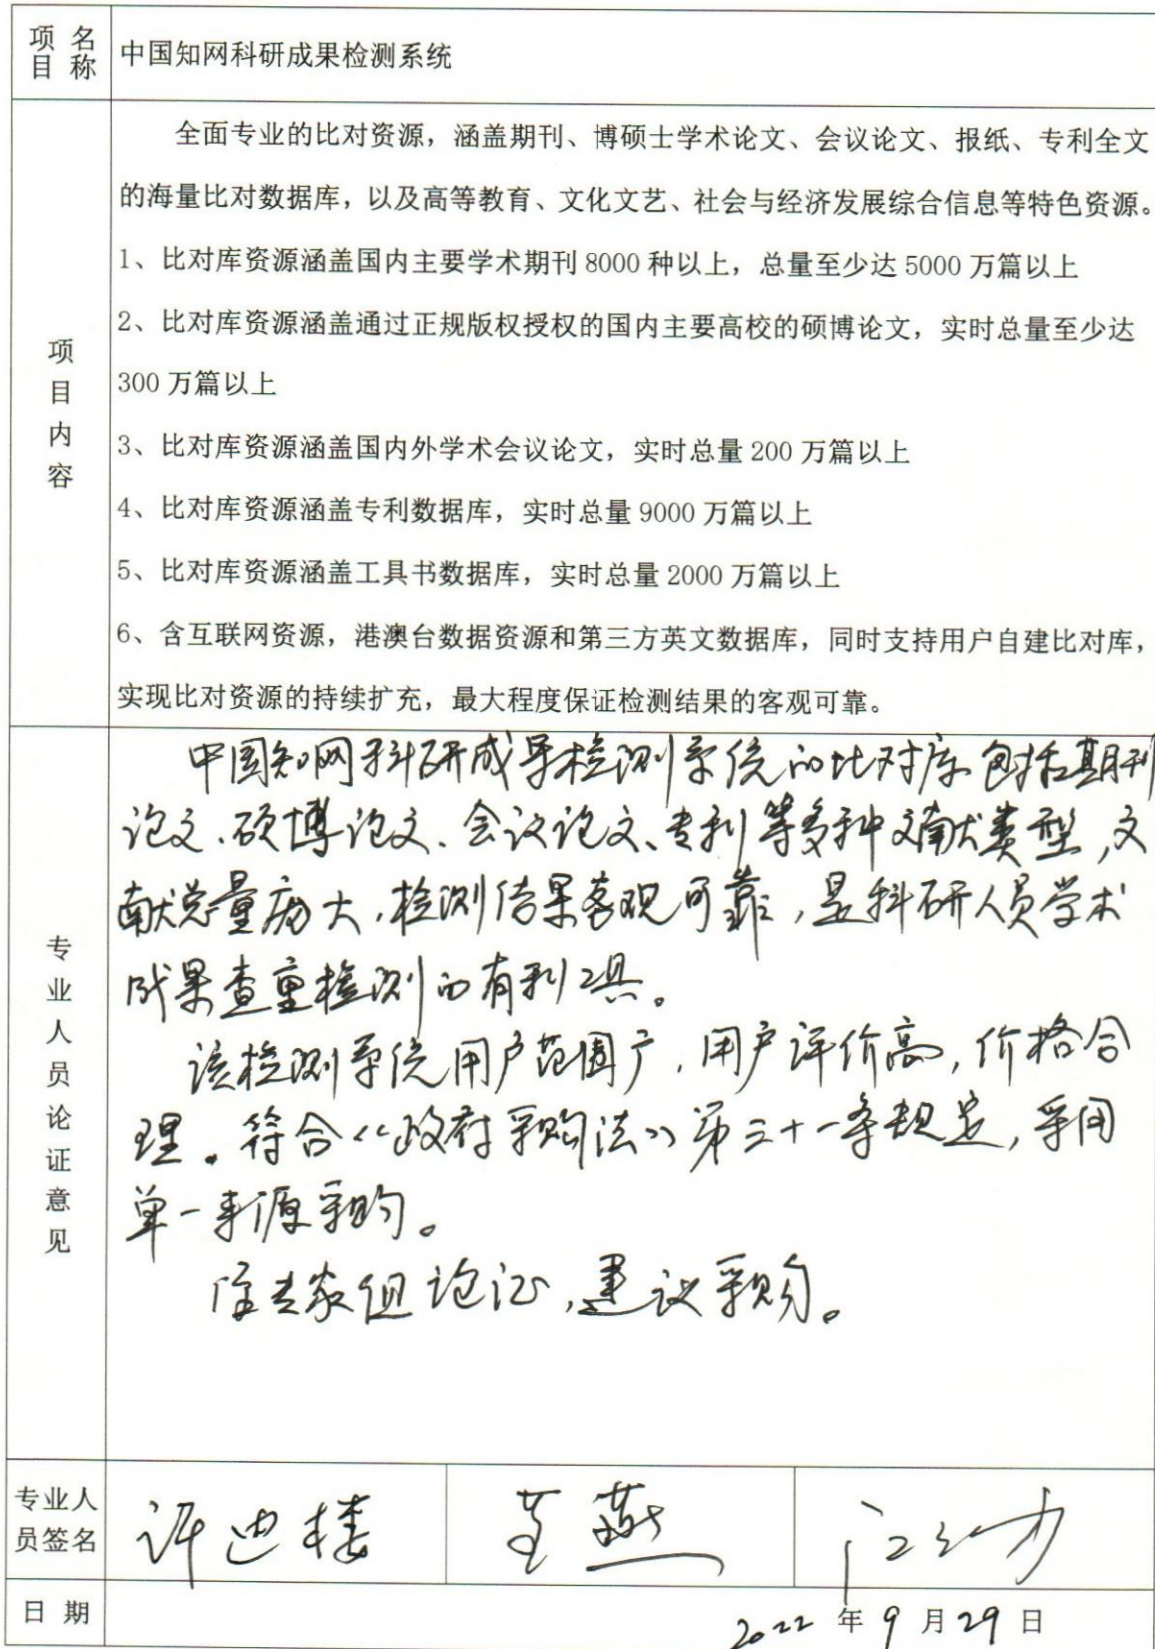 项目名称 中国知网科研成果检测系统
全面专业的比对资源，涵盖期刊、博硕士学术论文、会议论文、报纸、专利全文
的海量比对数据库，以及高等教育、文化文艺、社会与经济发展综合信息等特色资源。
1、比对库资源涵盖国内主要学术期刊 8000 种以上，总量至少达 5000 万篇以上
2、比对库资源涵盖通过正规版权授权的国内主要高校的硕博论文，实时总量至少达
300 万篇以上
3、比对库资源涵盖国内外学术会议论文，实时总量 200 万篇以上
4、比对库资源涵盖专利数据库，实时总量 9000 万篇以上
5、比对库资源涵盖工具书数据库，实时总量 2000 万篇以上
6、含互联网资源，港澳台数据资源和第三方英文数据库，同时支持用户自建比对库，
实现比对资源的持续扩充，最大程度保证检测结果的客观可靠。
项目内容
中国知网科研成果检测系统的比对库包括期刊
论文、硕博论文、会议论文、专利等多种文献类型，文
献总量庞大，检测结果客观可靠，是科研人员学术
成果查重检测的有利工具。
该检测系统用户范围广，用户评价高，价格合
理。符合《政府采购法》第三十一条规定，采用
单一来源采购。
经专家组论证，建议采购。
专业人员论证意见
专业人员签名 许迪楼
日期 2022 年 9 月 29 日